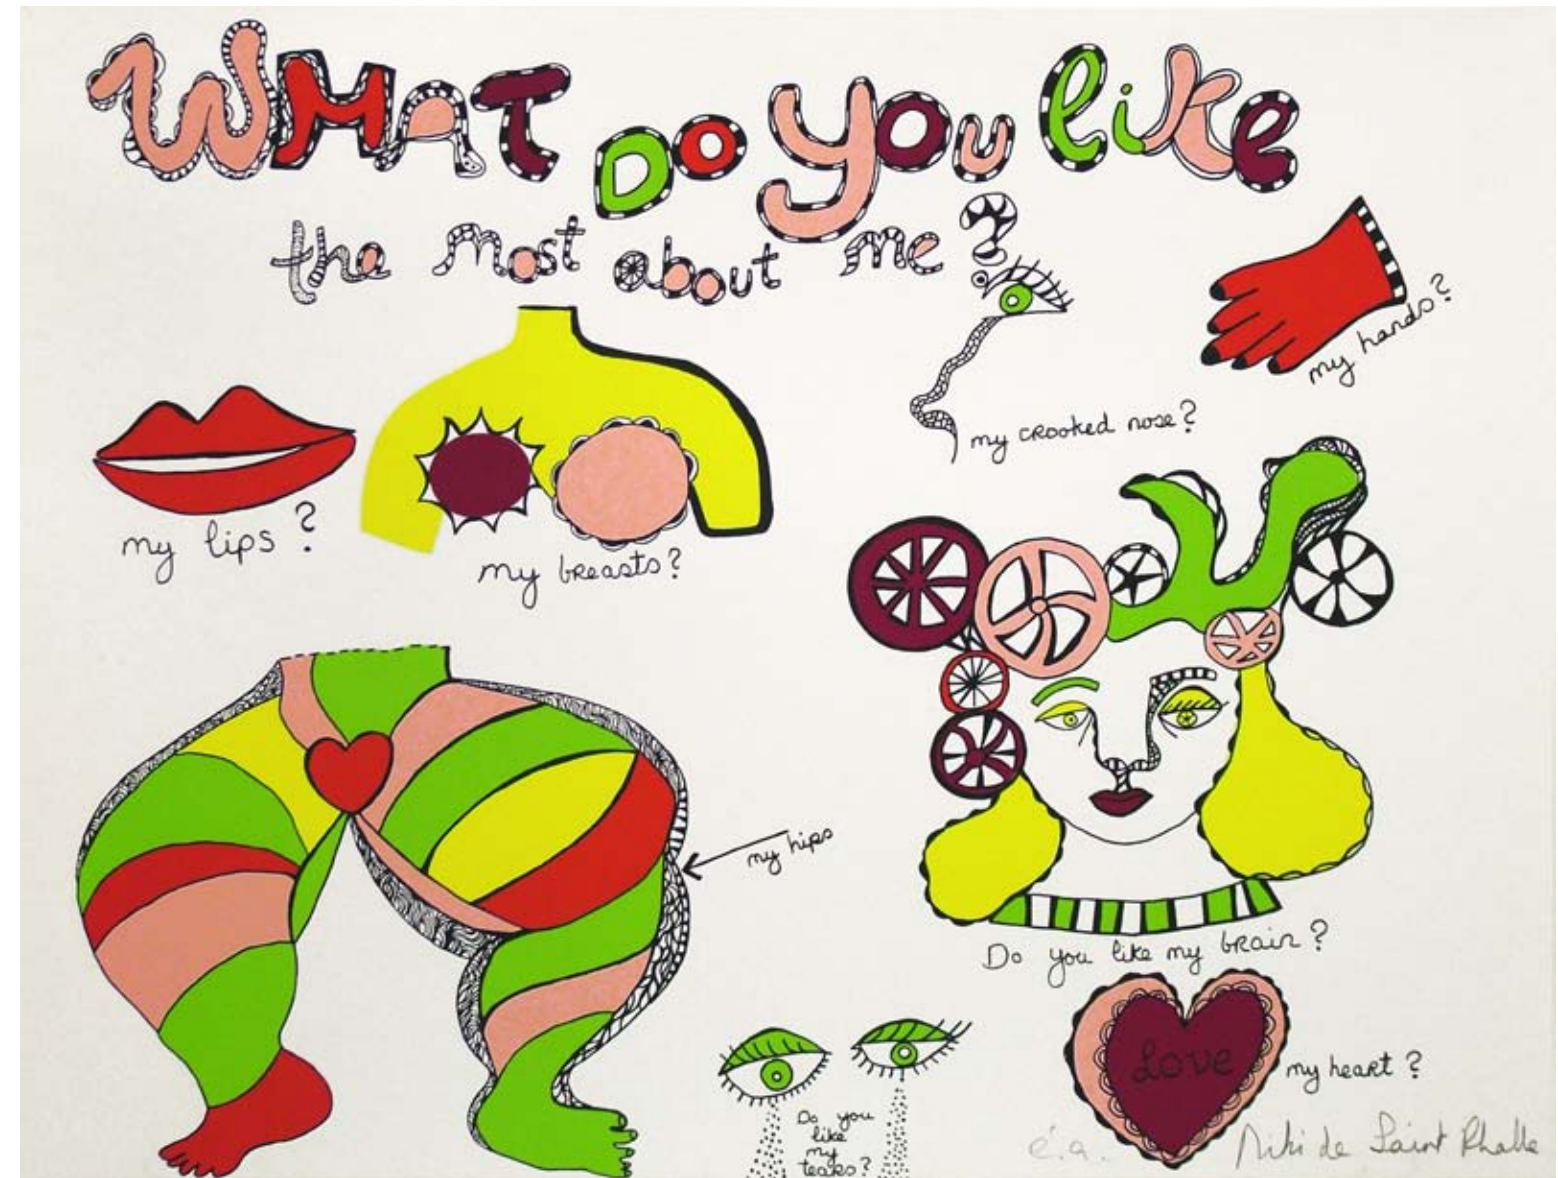 WHAT DO YOU like
the most about me?
my hands?
my crooked nose?
my lips?
my breasts?
my hips
Do you like my brain?
Do you
like
my
tears?
Love
my heart?
é.a.
Niki de Saint Phalle